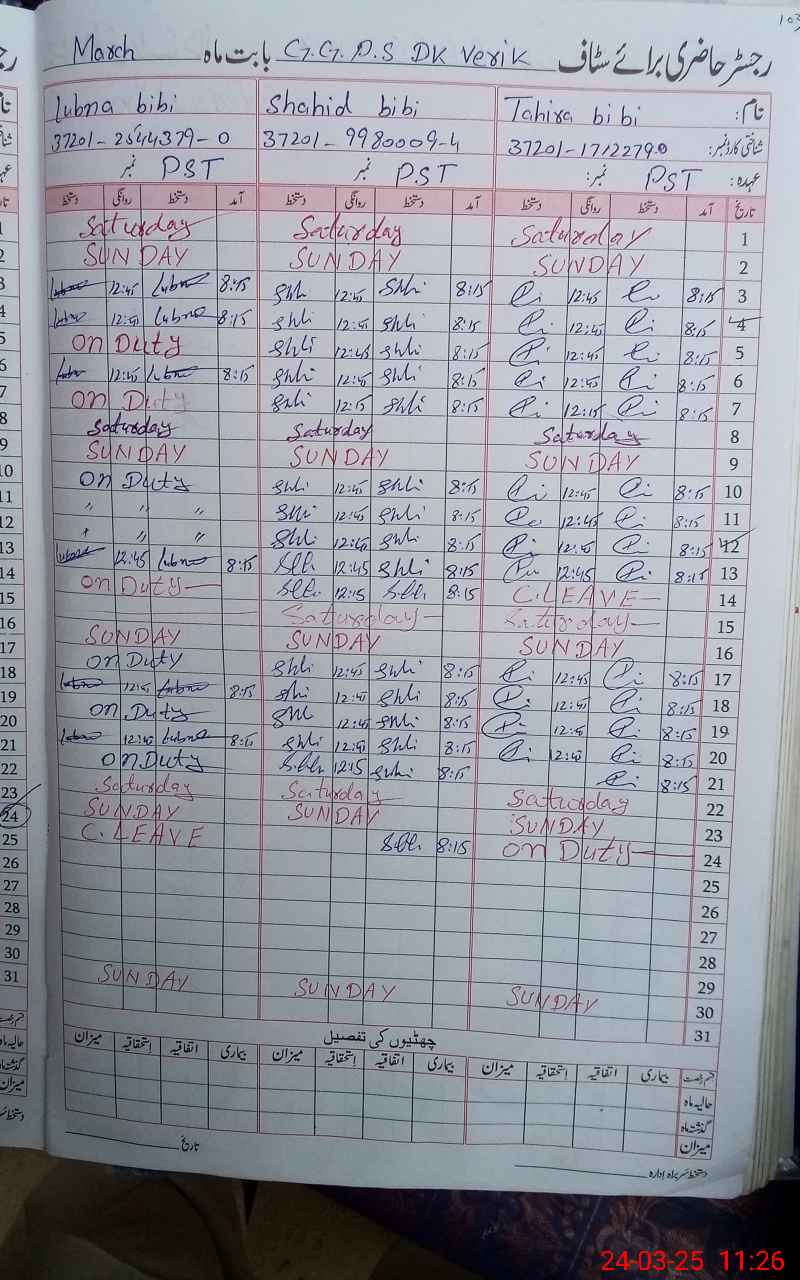 103
رجسٹر حاضری برائے سٹاف G.G.P.S DK Verik بابت ماہ March
نام: Tahira bibi Shahid bibi Lubna bibi
شناختی کارڈ نمبر: 37201-1712279-0 37201-9980009-4 37201-2544379-0
عہدہ: PST نمبر: PST نمبر PST نمبر
تاریخ آمد دستخط روانگی دستخط آمد دستخط روانگی دستخط آمد دستخط روانگی دستخط
1 Saturday Saturday Saturday
2 SUNDAY SUNDAY SUNDAY
3 8:15 12:45 8:15 Shli 12:45 Shli 8:15 Lubna 12:45 Lubna
4 8:15 12:45 8:15 Shli 12:45 Shli 8:15 Lubna 12:45 Lubna
5 8:15 12:45 8:15 Shli 12:45 Shli On Duty
6 8:15 12:45 8:15 Shli 12:45 Shli 8:15 Lubna 12:45 Lubna
7 8:15 12:15 8:15 Shli 12:15 Shli On Duty
8 Saturday Saturday Saturday
9 SUNDAY SUNDAY SUNDAY
10 8:15 12:45 8:15 Shli 12:45 Shli On Duty
11 8:15 12:45 8:15 Shli 12:45 Shli " " "
12 8:15 12:45 8:15 Shli 12:45 Shli " "
13 8:15 12:45 8:15 Shli 12:45 8:15 Lubna 12:45 Lubna
14 C.LEAVE 8:15 12:15 On Duty
15 Saturday Saturday
16 SUNDAY SUNDAY SUNDAY
17 8:15 12:45 8:15 Shli 12:45 Shli On Duty
18 8:15 12:45 8:15 Shli 12:45 Shli 8:15 Lubna 12:45 Lubna
19 8:15 12:45 8:15 Shli 12:45 Shli On Duty
20 8:15 12:45 8:15 Shli 12:45 Shli 8:15 Lubna 12:45 Lubna
21 8:15 8:15 Shli 12:15 On Duty
22 Saturday Saturday Saturday
23 SUNDAY SUNDAY SUNDAY
24 On Duty 8:15 C.LEAVE
25
26
27
28
29
30 SUNDAY SUNDAY SUNDAY
31
چھٹیوں کی تفصیل
قسم رخصت بیماری اتفاقیہ استحقاقیہ میزان بیماری اتفاقیہ استحقاقیہ میزان بیماری اتفاقیہ استحقاقیہ میزان
حالیہ ماہ
گذشتہ ماہ
میزان
دستخط سربراہ ادارہ تاریخ
24-03-25 11:26